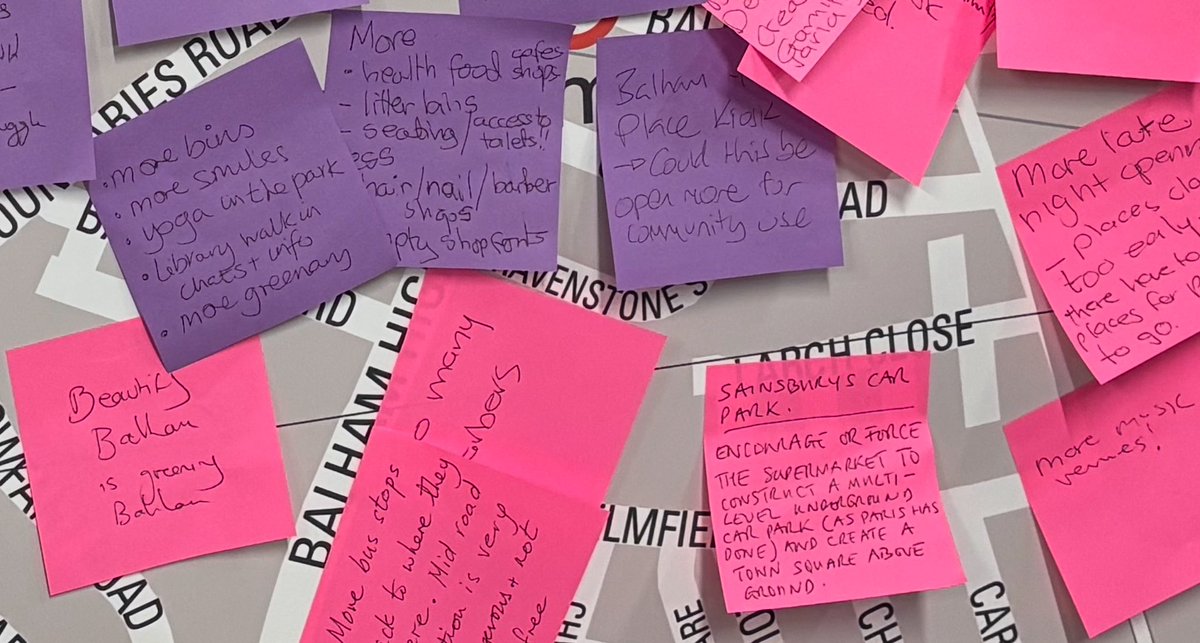 • more bins
• more smiles
• yoga in the park
• Library walk in
chats + info
• more greenary
More
• health food cafes
shops
- litter bins
- seating / access to
toilets!!
ess
hair/nail/barber
shops
pty shopfonts
Balham
Place Kiosk
→ Could this be
open more for
community use
More late
night openin
- places clo
too early
there have to
places for
to go.
Beautify
Balham
is greening
Balham
o many
rbers
More bus stops
ck to where they
ere. Mid road
tion is very
erous + not
free
SAINSBURYS CAR
PARK.
ENCOURAGE OR FORCE
THE SUPERMARKET TO
CONSTRUCT A MULTI-
LEVEL UNDERGROUND
CAR PARK (AS PARIS HAS
DONE) AND CREATE A
TOWN SQUARE ABOVE
GROUND.
more music
venues!
BALHAM HIG
AVENSTONE S
LARCH CLOSE
ILMFIE
OAD
ROAD
CAR
CH
ARE